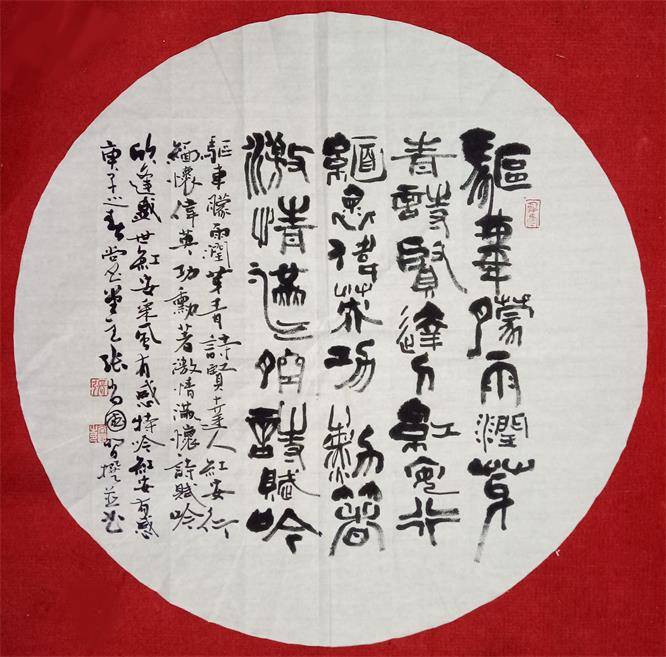 驅車朦雨潤芽
青詩賢達人紅安行
緬懷偉英功勳著
激情滿懷詩賦吟
驅車朦雨潤芽青詩賢達人紅安行
緬懷偉英功勳著激情滿懷詩賦吟
欣逢盛世紅安采風有感特吟紅安有感
庚子之春堂主張國智撰並書